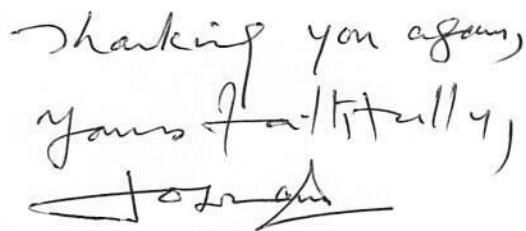 Thanking you again,
Yours faithfully,